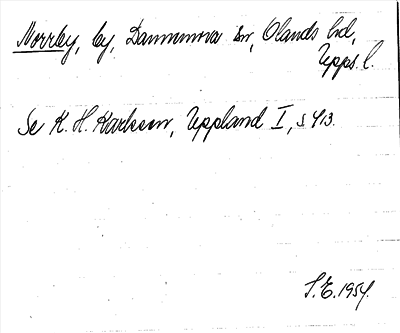 Norrby, by, Dannemora sn, Olands hd,
Upps. l.
Se K. H. Karlsson, Uppland I, s 413.
S.E. 1954.